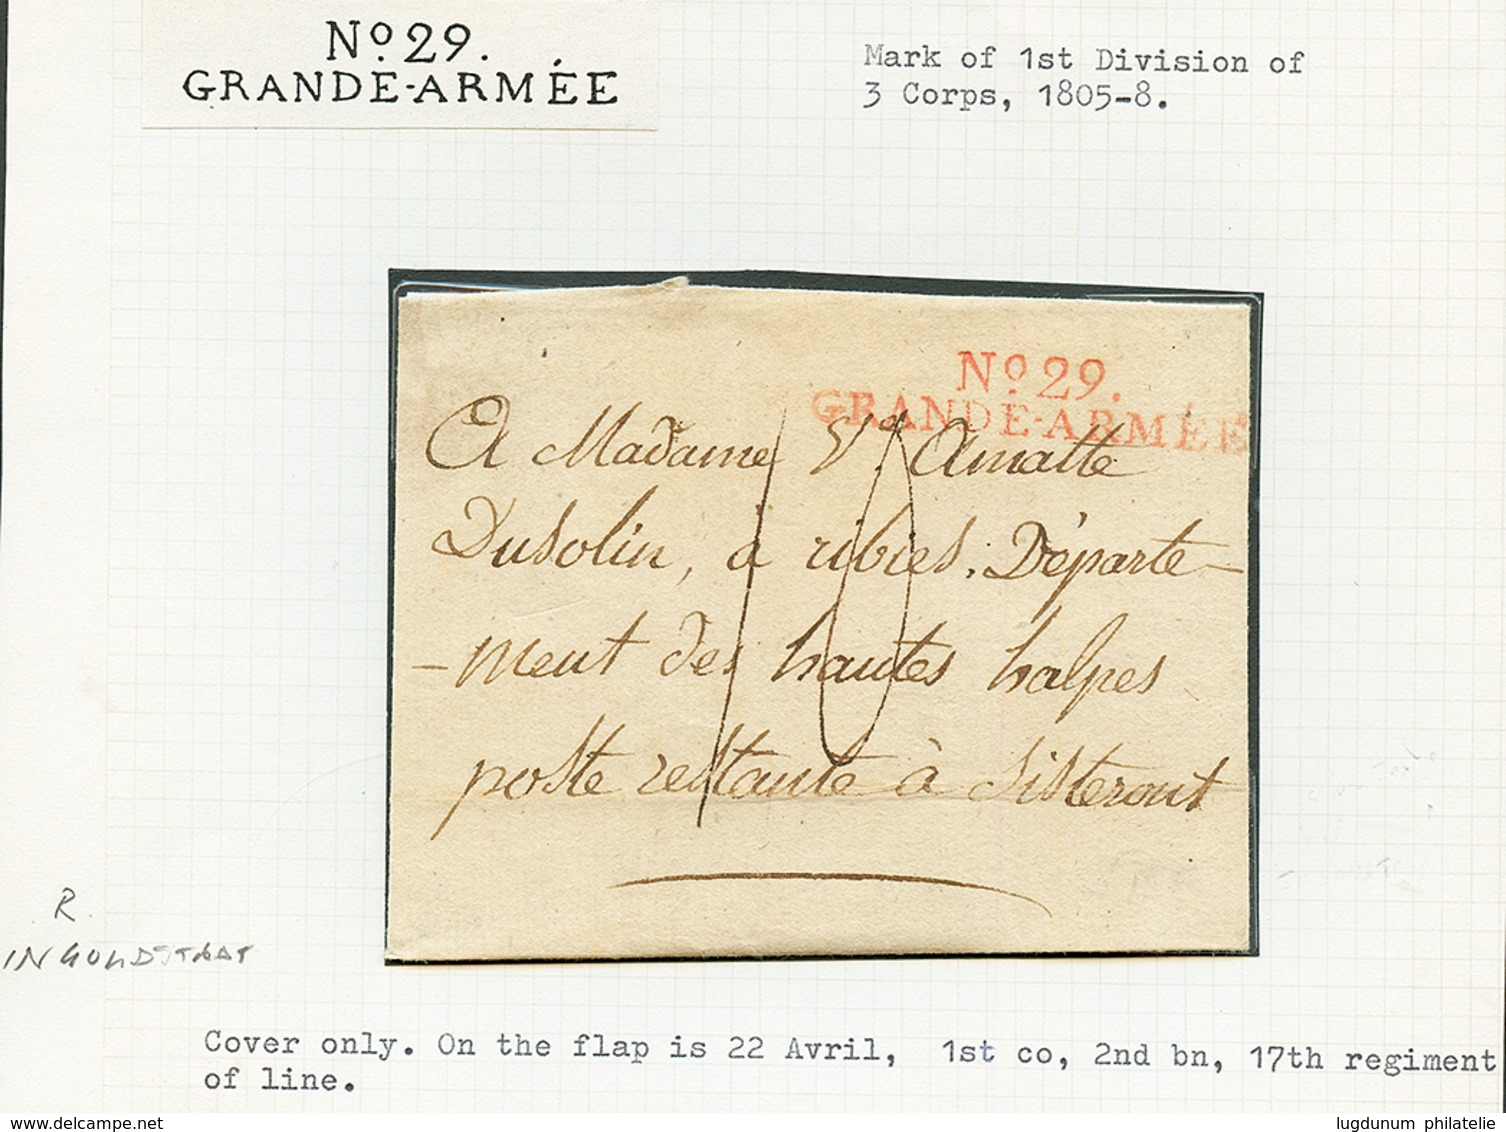 No. 29.
GRANDE-ARMÉE
Mark of 1st Division of
3 Corps, 1805-8.
No. 29.
GRANDE-ARMÉE
A Madame Ve. Amatte
Dusolin, à ribies, Départe-
-ment des hautes halpes
poste restante à Sisteront
10
R.
INGOLDSTADT
Cover only. On the flap is 22 Avril, 1st co, 2nd bn, 17th regiment
of line.
delcampe.net
lugdunum philatelie